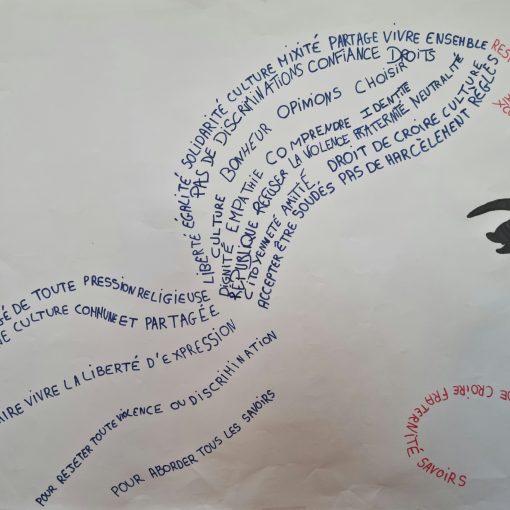 LIBERTÉ ÉGALITÉ SOLIDARITÉ CULTURE MIXITÉ PARTAGE VIVRE ENSEMBLE
PAS DE DISCRIMINATIONS CONFIANCE DROITS
CULTURE BONHEUR OPINIONS CHOISIR
DIGNITÉ EMPATHIE COMPRENDRE IDENTITÉ
RÉPUBLIQUE REFUSER LA VIOLENCE FRATERNITÉ NEUTRALITÉ
CITOYENNETÉ AMITIÉ DROIT DE CROIRE CULTURE
ACCEPTER ÊTRE SOUDÉS PAS DE HARCÈLEMENT RÈGLES
DE TOUTE PRESSION RELIGIEUSE
CULTURE COMMUNE ET PARTAGÉE
VIVRE LA LIBERTÉ D'EXPRESSION
POUR REJETER TOUTE VIOLENCE OU DISCRIMINATION
POUR ABORDER TOUS LES SAVOIRS
DE CROIRE FRATERNITÉ SAVOIRS